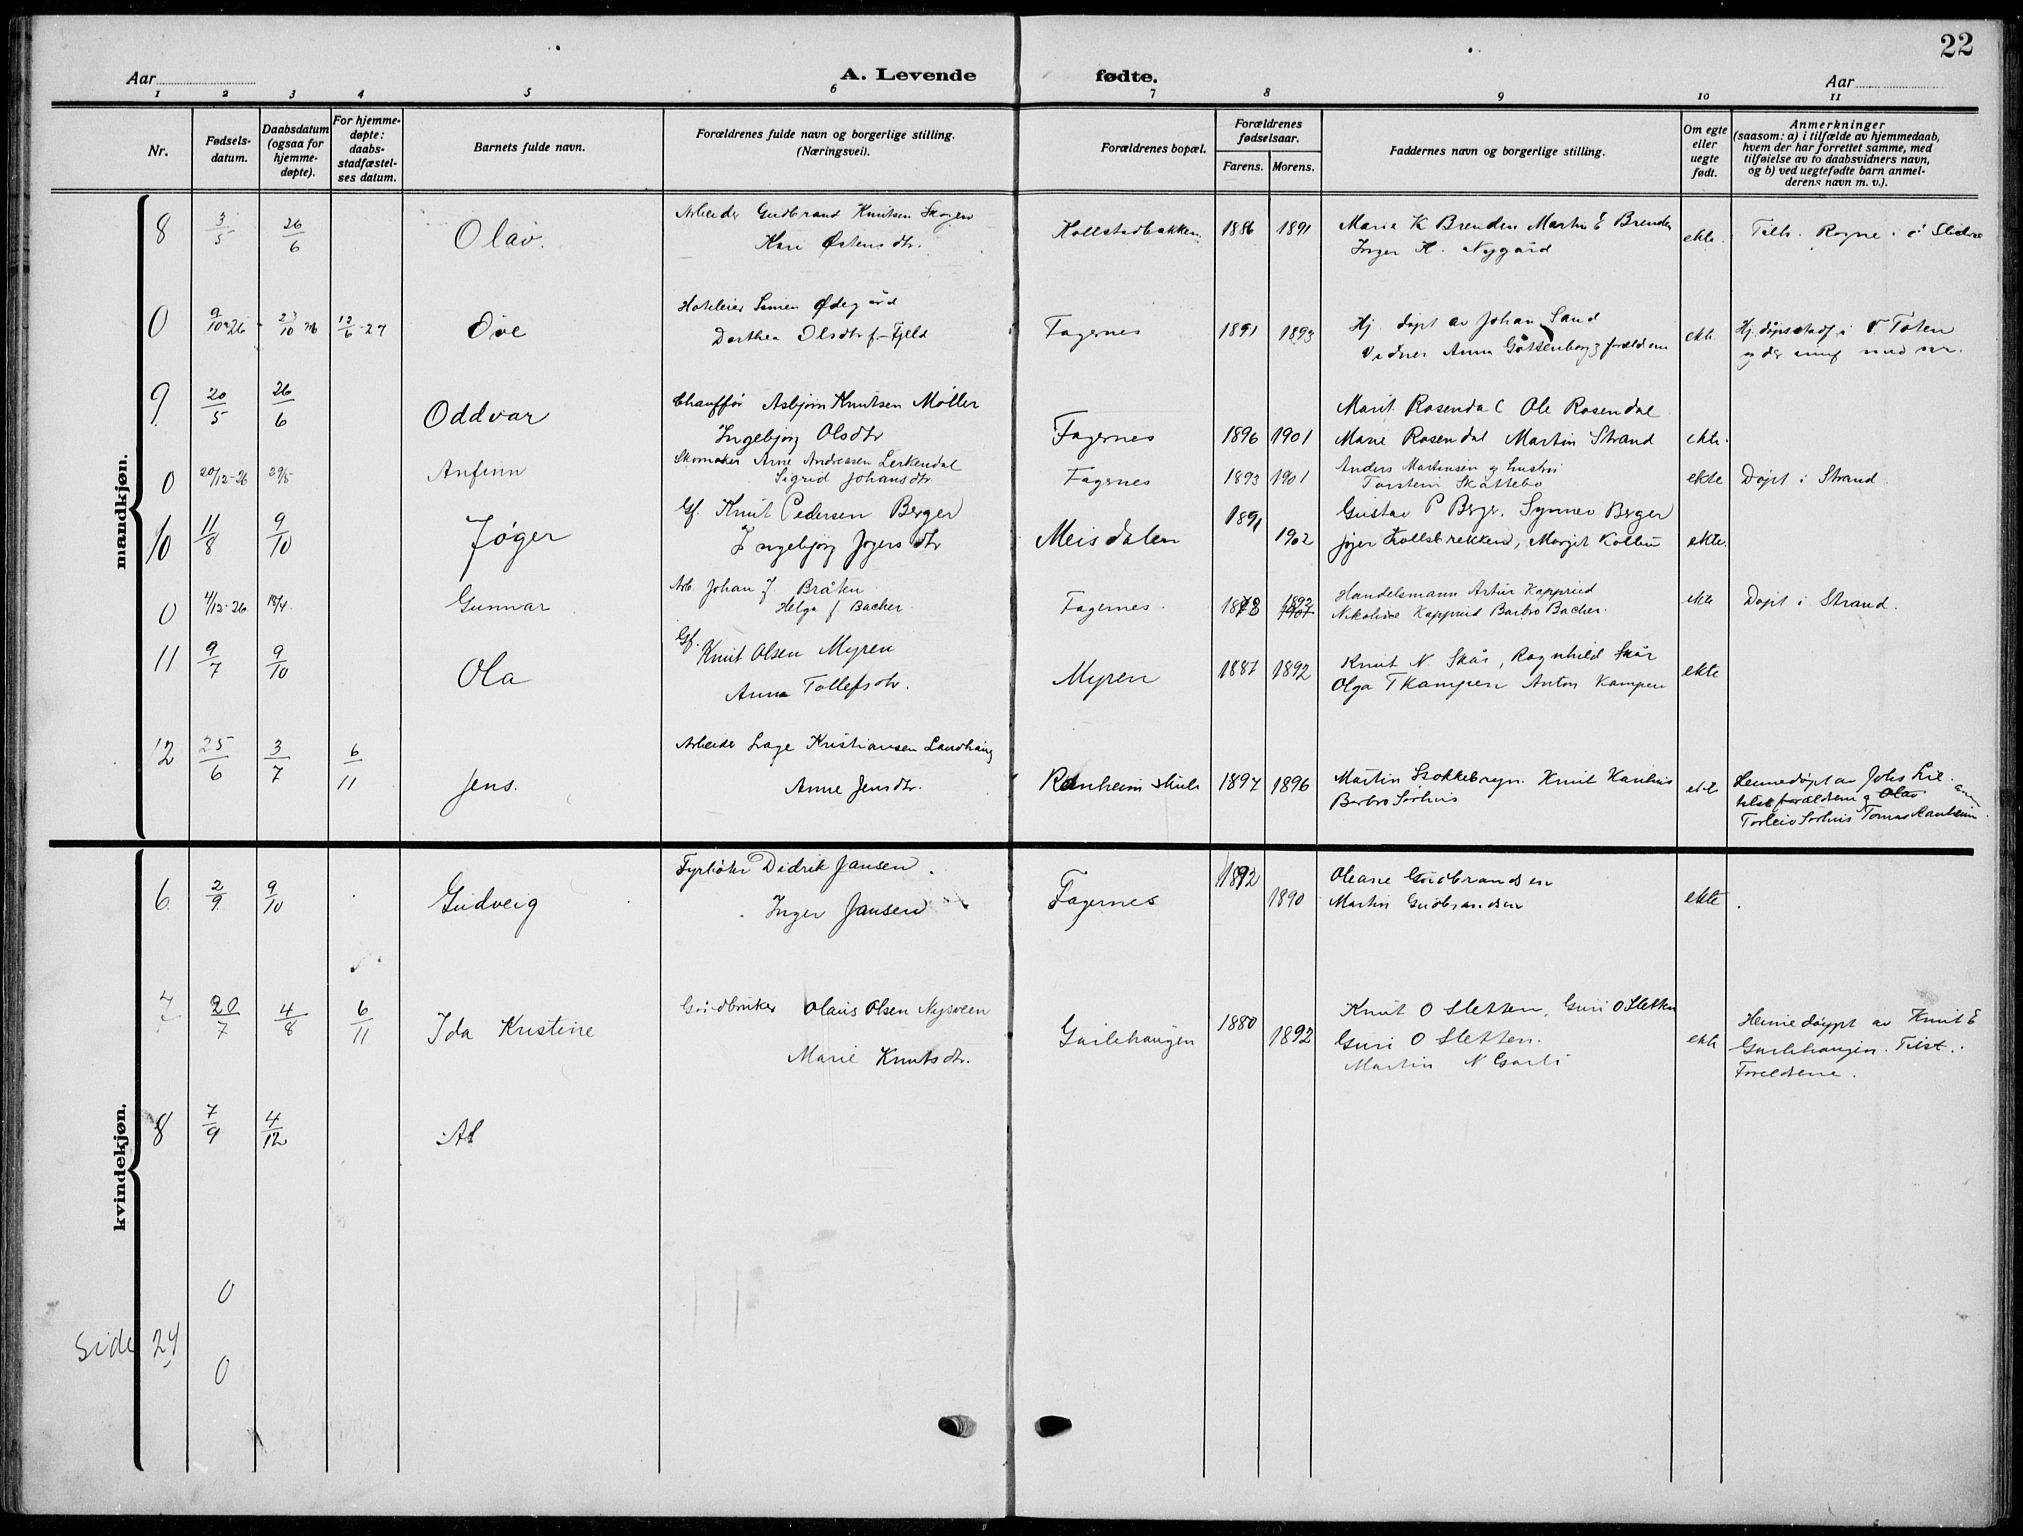 22
Aar
A. Levende
fødte.
Aar
1 2 3 4 5 6 7 8 9 10 11
Nr.
Fødsels-
datum.
Daabsdatum
(ogsaa for
hjemme-
døpte).
For hjemme-
døpte:
daabs-
stadfæstel-
ses datum.
Barnets fulde navn.
Forældrenes fulde navn og borgerlige stilling.
(Næringsvei).
Forældrenes bopæl.
Forældrenes
fødselsaar.
Farens. Morens.
Faddernes navn og borgerlige stilling.
Om egte
eller
uegte
født.
Anmerkninger
(saasom: a) i tilfælde av hjemmedaab,
hvem der har forrettet samme, med
tilføielse av to daabsvidners navn,
og b) ved uegtefødte barn anmel-
derens navn m. v.).
mandkjøn.
8 3/5 26/6 Olav. Arbeider Gudbrand Knutsen Skogen
Kari Østensdtr. Kollstadbakken 1886 1891 Maria K Brenden Martin E Brenden
Inger K. Nygård ekte. Tilh. Rogne i ø Slidre
0 9/10 26 23/10 26 12/6-27 Ove Hoteleier Simen Ødegård
Dorthea Olsdtr f. Fjeld Fagernes 1891 1893 Hj. døpt av Johan Sand
Vidner Anna Göttenborg og forældrene ekte Hj. døpsstadf. i V Toten
og der innf med nr.
9. 20/5 26/6 Oddvar Chauffør Asbjørn Knutsen Møller
Ingebjørg Olsdtr Fagernes 1896 1901 Marit Rosendal Ole Rosendal
Marie Rosendal Martin Strand ekte.
0 20/12-26 29/5 Anfinn Skomaker Arne Andreasen Lerkendal
Sigrid Johansdtr Fagernes 1893 1901 Anders Martinsen og hustru
Torstein Skattebo ekte Døpt i Strand
10 11/8 9/10 Jøger Gf. Knut Pedersen Berger
Ingebjørg Jøgersdtr Meisdalen 1891 1902 Gustav P Berger. Synnev Berger
Jøger Kollsbrekken, Margit Kollin ekte.
0 4/12-26 18/4 Gunnar Arb. Johan J Bråten
Helga f Bacher Fagernes. 1878 1892 Handelsmann Artur Kapprud
Nikoline Kapprud Barbro Bacher. ekte Døpt i Strand.
11 9/7 9/10 Ola Gf. Knut Olsen Myren
Anna Tollefsdtr. Myren 1887 1892 Knut N. Skår, Ragnhild Skår
Olga T Kampen Anton Kampen ekte
12 25/6 3/7 6/11 Jens. Arbeider Lage Kristiansen Landhaug
Anne Jensdtr. Ranheim skule 1897 1896 Martin Stokkebryn. Knut Kanhus
Barbro Sørhus ekte Heimedøpt av Johs Lie.
forældrene og Olav
Torleiv Sørhus Tomas Ranheim
kvindekjøn.
6 2/9 9/10 Gudveig Fyrbøter Didrik Jansen.
Inger Jansen Fagernes 1892 1890 Oleane Gudbrandsen
Martin Gudbrandsen ekte.
7 20/7 4/8 6/11 Ida Kristine Gårdbruker Olaus Olsen Nysveen
Marie Knutsdtr. Garlehaugen 1880 1892 Knut O Sletten, Guri O Sletten
Guri O Sletten.
Martin N Garli ekte Heimedøypt av Knut E
Garlehaugen. Tilst.:
Foreldrene.
8 7/9 4/12 Al
0
Side 24
0